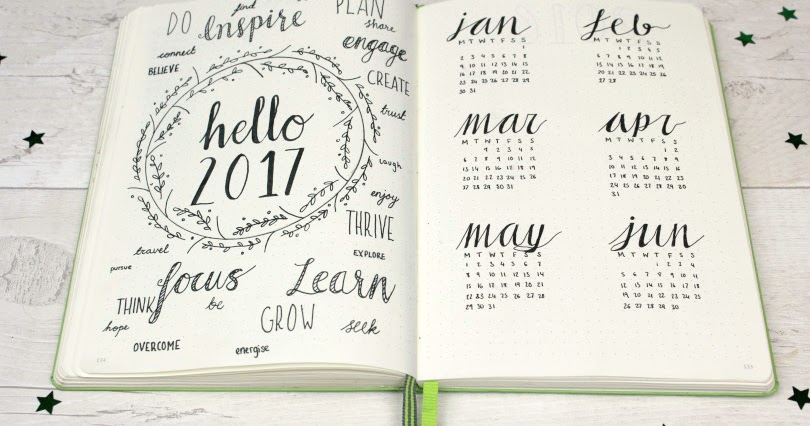 DO
find
Inspire
PLAN
share
connect
engage
BELIEVE
CREATE
trust
hello
2017
laugh
enjoy
THRIVE
EXPLORE
travel
pursue
focus
Learn
THINK
be
GROW
hope
seek
OVERCOME
energise
jan
M T W T F S S
1
2 3 4 5 6 7 8
9 10 11 12 13 14 15
16 17 18 19 20 21 22
23 24 25 26 27 28 29
30 31
feb
M T W T F S S
1 2 3 4 5
6 7 8 9 10 11 12
13 14 15 16 17 18 19
20 21 22 23 24 25 26
27 28
mar
M T W T F S S
1 2 3 4 5
6 7 8 9 10 11 12
13 14 15 16 17 18 19
20 21 22 23 24 25 26
27 28 29 30 31
apr
M T W T F S S
1 2
3 4 5 6 7 8 9
10 11 12 13 14 15 16
17 18 19 20 21 22 23
24 25 26 27 28 29 30
31
may
M T W T F S S
1 2 3 4 5 6 7
8 9 10 11 12 13 14
15 16 17 18 19 20 21
22 23 24 25 26 27 28
29 30 31
jun
M T W T F S S
1 2 3 4
5 6 7 8 9 10 11
12 13 14 15 16 17 18
19 20 21 22 23 24 25
26 27 28 29 30